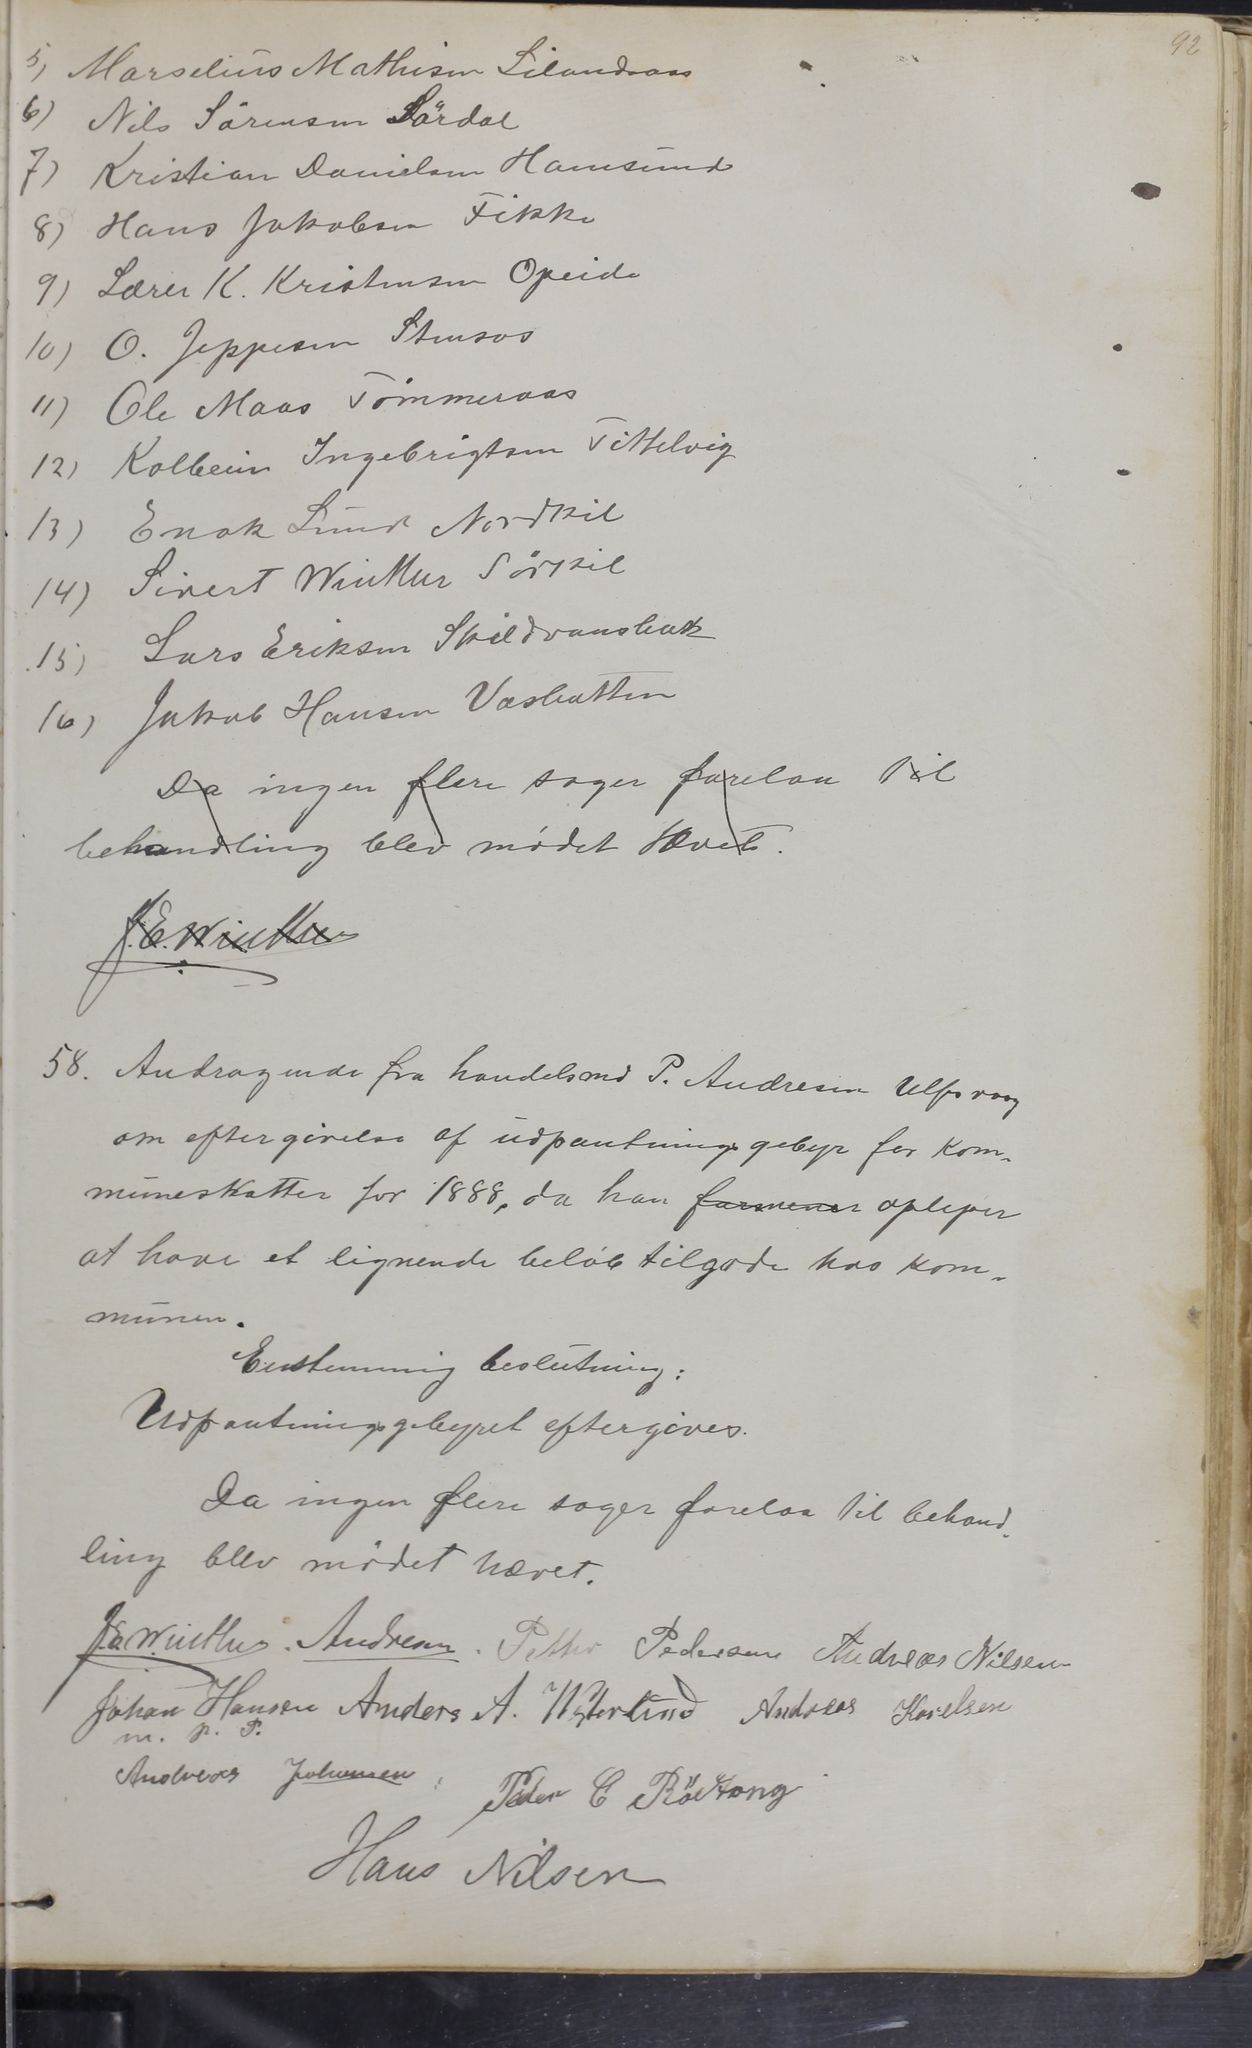 92
5) Marselius Mathisen Lilandsaas
6) Nils Sörensen Sördal
7) Kristian Danielsen Hamsund
8) Hans Jakobsen Fikke
9) Lærer K. Kristensen Opeide
10) O. Jeppesen Stensos
11) Ole Maas Tömmeraas
12) Kolbein Ingebrigtsen Tittelvig
13) Enok Lund Nordkil
14) Sivert Winther Sörkil
15) Lars Eriksen Skildvansbak
16) Jakob Hansen Vasbatten
Da ingen flere sager forelaa til
behandling blev mødet Hævet.
J.E. Winther
58. Andragende fra handelsmd P. Andresen Ulfsvaag
om eftergivelse af udpantningsgebyr for kom-
muneskatter for 1888, da han formener oplyser
at have et lignende beløb tilgode hos kom-
munen.
Enstemmig beslutning:
Udpantningsgebyret eftergives.
Da ingen flere sager forelaa til behand-
ling blev mødet hævet.
J.E. Winther. Andresen. Petter Pedersen Andreas Nilsen
Johan Hansen Anders A. Andreas Karelsen
m. p. P.
Andreas Johansen, Peder C
Hans Nilsen